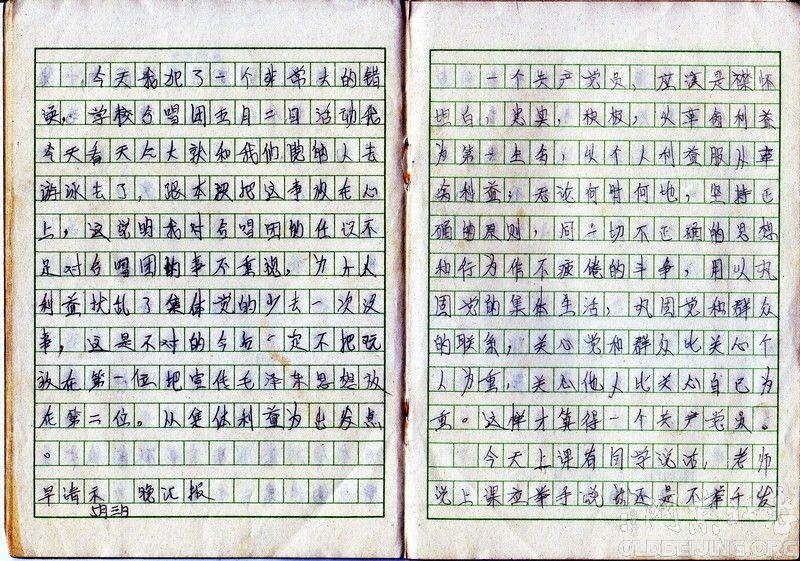 今天我犯了一个非常大的错
误，学校合唱团五月二日活动我
今天看天气大就和我们院的人去
游泳去了，跟本没把这事放在心
上，这说明我对合唱团的任识不
足对合唱团的事不重视，为个人
利益扰乱了集体觉的少去一次没
事，这是不对的今后一定不把玩
放在第一位把宣传毛泽东思想放
在第二位。从集体利益为出发点
。
早请示 晚汇报
月三日
一个共产党员，应该是襟怀
坦白，忠实，积极，以革命利益
为第一生命，以个人利益服从革
命利益；无论何时何地，坚持正
确的原则，同一切不正确的思想
和行为作不疲倦的斗争，用以巩
固党的集体生活，巩固党和群众
的联系，关心党和群众比关心个
人为重，关心他人比关心自己为
重。这样才算得一个共产党员。
今天上课有同学说话，老师
说上课应举手说 还是不举手发
OLDBEIJING.ORG